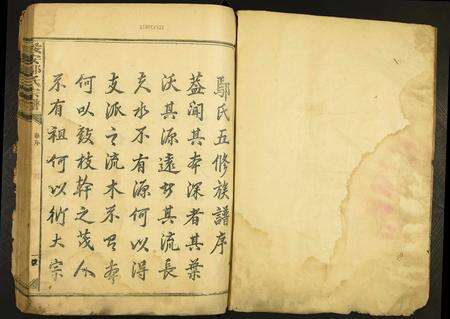 鄢氏五修族譜序
蓋聞其本深者其葉
沃其源遠者其流長
夫水不有源何以得
支派之流木不有本
何以發枝幹之茂人
不有祖何以衍大宗